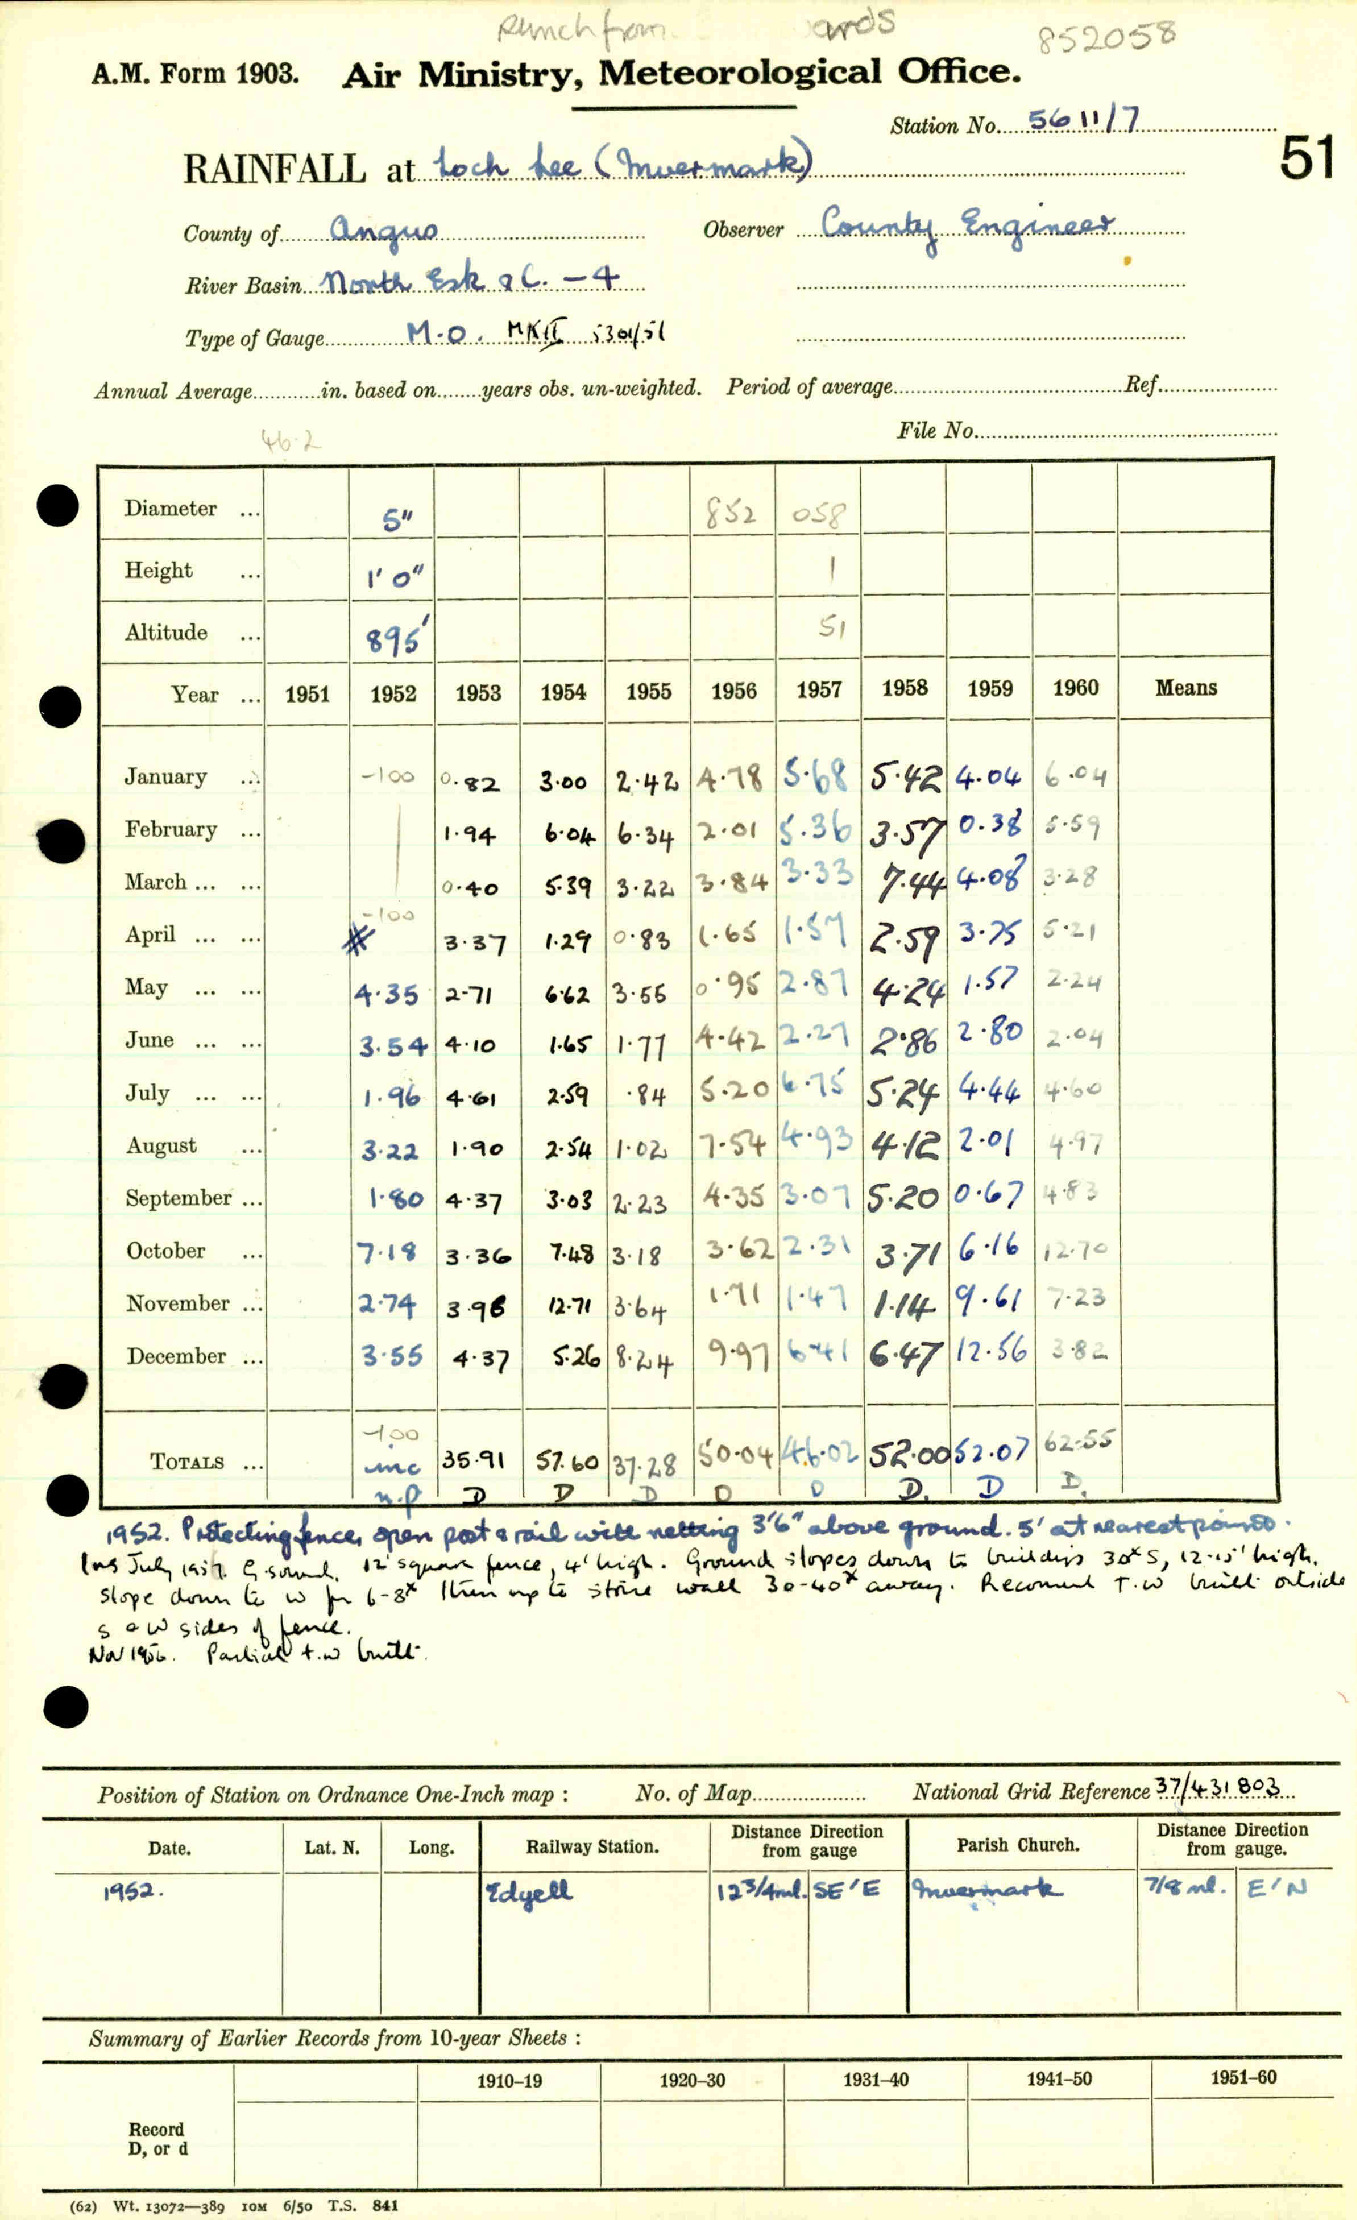 Runch from ards 852058
A.M. Form 1903. Air Ministry, Meteorological Office.
Station No. 5611/7
51
RAINFALL at Loch Lee (Invermark)
County of Angus Observer County Engineer
River Basin North Esk &c. - 4
Type of Gauge M.O. MKII 5301/51
Annual Average in. based on years obs. un-weighted. Period of average Ref.
File No.
46.2
Diameter ... 5" 852 058
Height ... 1' 0" 1
Altitude ... 895' 51
Year ... 1951 1952 1953 1954 1955 1956 1957 1958 1959 1960 Means
January ... -100 0.82 3.00 2.42 4.78 5.68 5.42 4.04 6.04
February ... 1.94 6.04 6.34 2.01 5.36 3.57 0.38 5.59
March ... ... 0.40 5.39 3.22 3.84 3.33 7.44 4.08 3.28
-100
April ... ... 3.37 1.29 0.83 1.65 1.57 2.59 3.75 5.21
May ... ... 4.35 2.71 6.62 3.55 0.95 2.87 4.24 1.57 2.24
June ... ... 3.54 4.10 1.65 1.77 4.42 2.27 2.86 2.80 2.04
July ... ... 1.96 4.61 2.59 .84 5.20 6.75 5.24 4.44 4.60
August ... 3.22 1.90 2.54 1.02 7.54 4.93 4.12 2.01 4.97
September ... 1.80 4.37 3.03 2.23 4.35 3.07 5.20 0.67 4.83
October ... 7.18 3.36 7.48 3.18 3.62 2.31 3.71 6.16 12.70
November ... 2.74 3.96 12.71 3.64 1.71 1.47 1.14 9.61 7.23
December ... 3.55 4.37 5.26 8.24 9.97 6.41 6.47 12.56 3.82
-1.00
TOTALS ... inc 35.91 57.60 37.28 50.04 46.02 52.00 52.07 62.55
n.p D D D D D D. D D.
1952. Protecting fence, open post & rail with netting 3'6" above ground. 5' at nearest points.
Ins July 1957. G sound. 12' square fence, 4' high. Ground slopes down to buildings 30x S, 12-15' high.
slope down to W for 6-8x then up to stone wall 30-40x away. Recommend T.W built outside
S & W sides of fence.
Nov 1956. Partial t.w built.
Position of Station on Ordnance One-Inch map : No. of Map National Grid Reference 37/431803
Date. Lat. N. Long. Railway Station. Distance Direction from gauge Parish Church. Distance Direction from gauge.
1952. Edyell 12 3/4 ml. SE'E Invermark 7/8 ml. E'N
Summary of Earlier Records from 10-year Sheets :
1910–19 1920–30 1931–40 1941–50 1951–60
Record
D, or d
(62) Wt. 13072—389 10M 6/50 T.S. 841